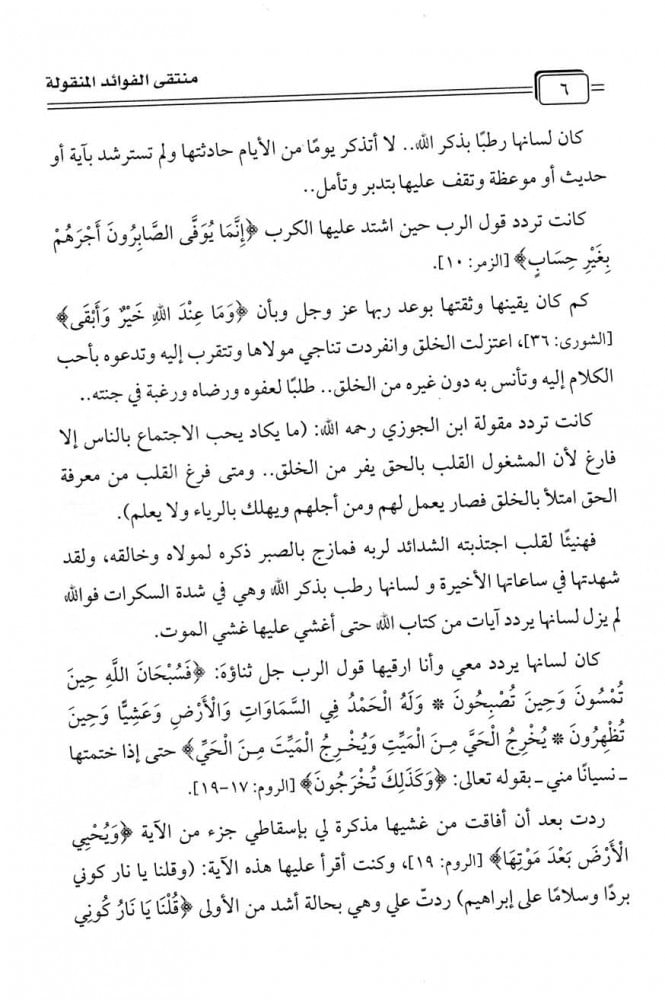 منتقى الفوائد المنقولة
٦
كان لسانها رطبًا بذكر الله.. لا أتذكر يومًا من الأيام حادثتها ولم تسترشد بآية أو
حديث أو موعظة وتقف عليها بتدبر وتأمل..
كانت تردد قول الرب حين اشتد عليها الكرب ﴿إِنَّمَا يُوَفَّى الصَّابِرُونَ أَجْرَهُمْ
بِغَيْرِ حِسَابٍ﴾ [الزمر: ١٠].
كم كان يقينها وثقتها بوعد ربها عز وجل وبأن ﴿وَمَا عِنْدَ اللَّهِ خَيْرٌ وَأَبْقَى﴾
[الشورى: ٣٦]، اعتزلت الخلق وانفردت تناجي مولاها وتتقرب إليه وتدعوه بأحب
الكلام إليه وتأنس به دون غيره من الخلق.. طلبًا لعفوه ورضاه ورغبة في جنته..
كانت تردد مقولة ابن الجوزي رحمه الله: (ما يكاد يحب الاجتماع بالناس إلا
فارغ لأن المشغول القلب بالحق يفر من الخلق.. ومتى فرغ القلب من معرفة
الحق امتلأ بالخلق فصار يعمل لهم ومن أجلهم ويهلك بالرياء ولا يعلم).
فهنيئًا لقلب اجتذبته الشدائد لربه فمازج بالصبر ذكره لمولاه وخالقه، ولقد
شهدتها في ساعاتها الأخيرة و لسانها رطب بذكر الله وهي في شدة السكرات فوالله
لم يزل لسانها يردد آيات من كتاب الله حتى أغشي عليها غشي الموت.
كان لسانها يردد معي وأنا ارقيها قول الرب جل ثناؤه: ﴿فَسُبْحَانَ اللَّهِ حِينَ
تُمْسُونَ وَحِينَ تُصْبِحُونَ * وَلَهُ الْحَمْدُ فِي السَّمَاوَاتِ وَالْأَرْضِ وَعَشِيًّا وَحِينَ
تُظْهِرُونَ * يُخْرِجُ الْحَيَّ مِنَ الْمَيِّتِ وَيُخْرِجُ الْمَيِّتَ مِنَ الْحَيِّ﴾ حتى إذا ختمتها
ـ نسيانًا مني ـ بقوله تعالى: ﴿وَكَذَلِكَ تُخْرَجُونَ﴾ [الروم: ١٧-١٩].
ردت بعد أن أفاقت من غشيها مذكرة لي بإسقاطي جزء من الآية ﴿وَيُحْيِي
الْأَرْضَ بَعْدَ مَوْتِهَا﴾ [الروم: ١٩]، وكنت أقرأ عليها هذه الآية: (وقلنا يا نار كوني
بردًا وسلامًا على إبراهيم) ردتّ علي وهي بحالة أشد من الأولى ﴿قُلْنَا يَا نَارُ كُونِي